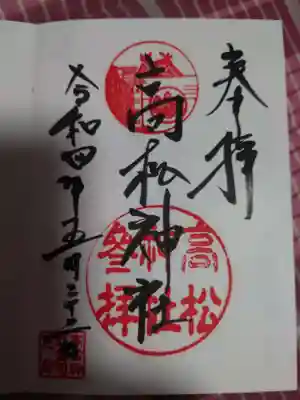 奉拝
高松神社
令和四年五月二十二
高松
神社
参拝